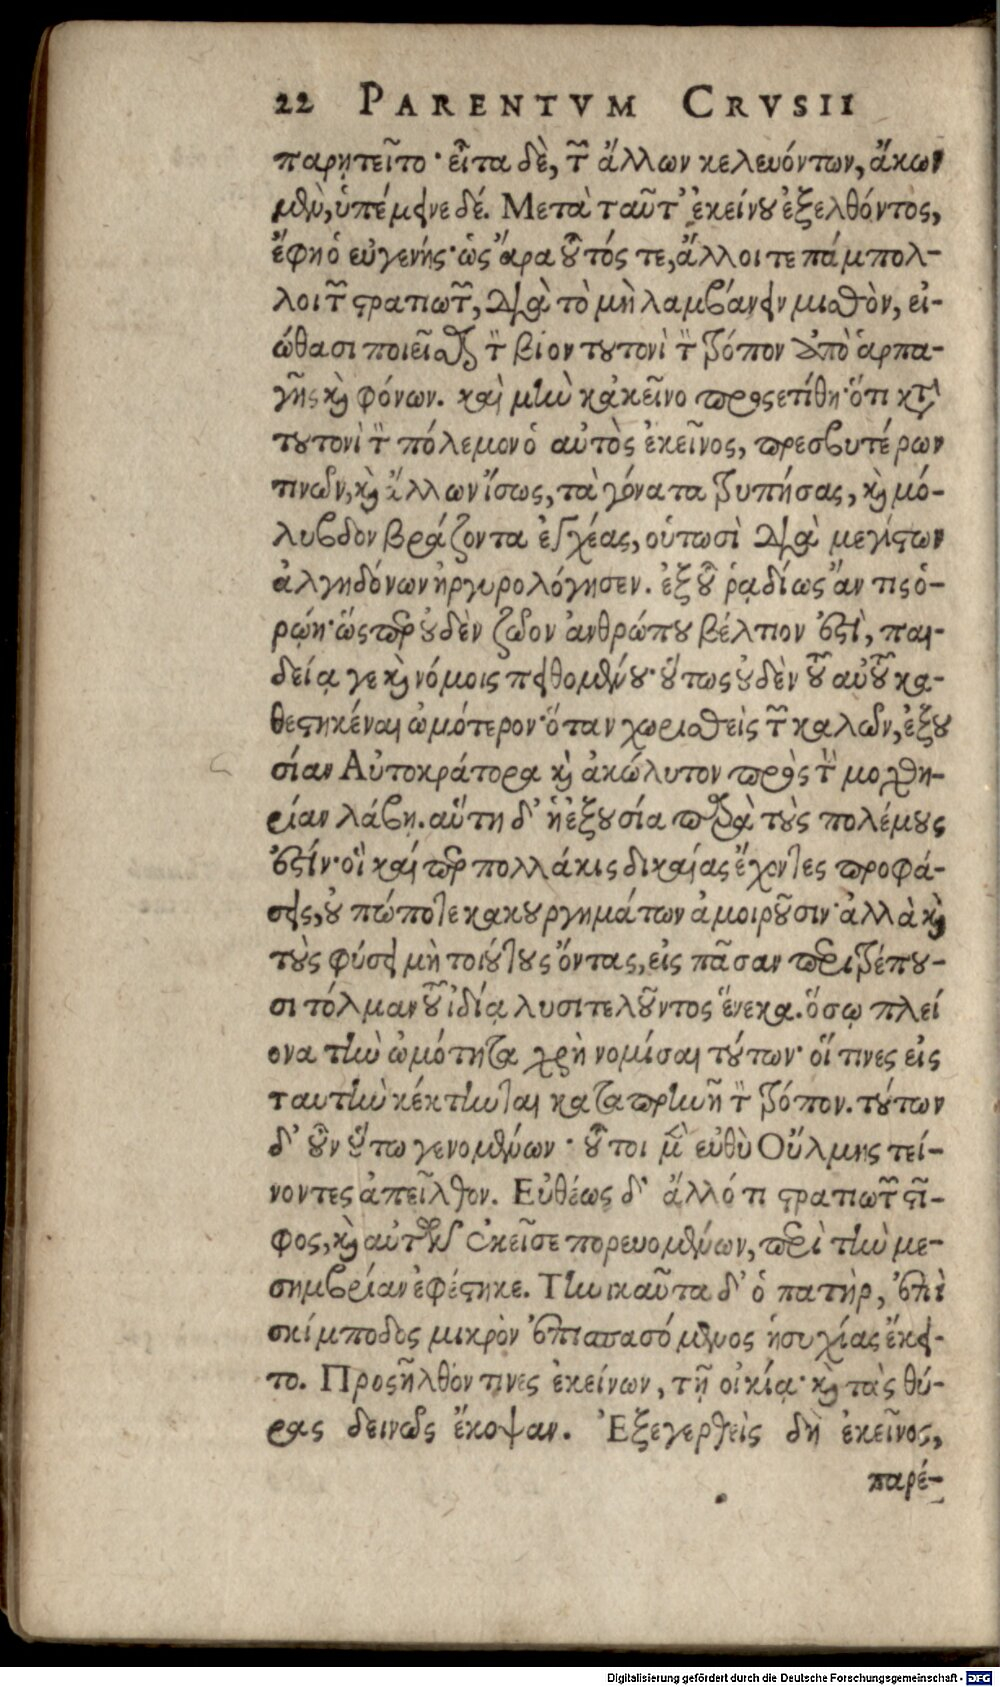 22 PARENTVM CRVSII
παρῃτεῖτο· εἶτα δὲ, τῶν ἄλλων κελευόντων, ἄκων
μὲν, ὑπέμεινε δέ. Μετὰ ταῦτ' ἐκείνου ἐξελθόντος,
ἔφη ὁ εὐγενής· ὡς ἄρα οὗτός τε, ἄλλοι τε πάμπολ-
λοι τῶν στρατιωτῶν, διὰ τὸ μὴ λαμβάνειν μισθὸν, εἰ-
ώθασι ποιεῖσθαι τὸν βίον τουτονὶ τὸν τρόπον ἀπὸ ἁρπα-
γῆς καὶ φόνων. καὶ μὴν κἀκεῖνο προσετίθη· ὅτι κατὰ
τουτονὶ τὸν πόλεμον ὁ αὐτὸς ἐκεῖνος, πρεσβυτέρων
τινῶν, καὶ ἄλλων ἴσως, τὰ γόνατα τρυπήσας, καὶ μό-
λυβδον βράζοντα ἐγχέας, οὑτωσὶ διὰ μεγίστων
ἀλγηδόνων ἠργυρολόγησεν. ἐξ οὗ ῥᾳδίως ἄν τις ὁ-
ρῴη· ὥσπερ οὐδὲν ζῶον ἀνθρώπου βέλτιον ἐστὶ, παι-
δείᾳ γε καὶ νόμοις πειθομένου· οὕτως οὐδὲν τοῦ αὐτοῦ κα-
θεστηκέναι ὠμότερον· ὅταν χωρισθεὶς τῶν καλῶν, ἐξου
σίαν Αὐτοκράτορα καὶ ἀκώλυτον πρὸς τὴν μοχθη-
ρίαν λάβῃ. αὕτη δ' ἡ ἐξουσία παρὰ τοὺς πολέμους
ἐστίν· οἳ καίπερ πολλάκις δικαίας ἔχοντες προφά-
σεις, οὐ πώποτε κακουργημάτων ἀμοιροῦσιν· ἀλλὰ καὶ
τοὺς φύσει μὴ τοιούτους ὄντας, εἰς πᾶσαν περιτρέπου-
σι τόλμαν τοῦ ἰδίᾳ λυσιτελοῦντος ἕνεκα. ὅσῳ πλεί
ονα τὴν ὠμότητα χρὴ νομίσαι τούτων· οἵ τινες εἰς
ταυτὴν κέκτηνται καταπρηνῆ τὸν τρόπον. τούτων
δ' οὖν οὕτω γενομένων· οὗτοι μὲν εὐθὺ Οὔλμης τεί-
νοντες ἀπεῖλθον. Εὐθέως δ' ἄλλό τι στρατιωτῶν στῖ-
φος, καὶ αὐτῶν ἐκεῖσε πορευομένων, περὶ τὴν με-
σημβρίαν ἐφέστηκε. Τηνικαῦτα δ' ὁ πατὴρ, ἐπὶ
σκίμποδος μικρὸν ἐπισπασόμενος ἡσυχίας ἔκει-
το. Προσῆλθόν τινες ἐκείνων, τῇ οἰκίᾳ· καὶ τὰς θύ-
ρας δεινῶς ἔκοψαν. Ἐξεγερθεὶς δὴ ἐκεῖνος,
παρέ-
Digitalisierung gefördert durch die Deutsche Forschungsgemeinschaft - DFG